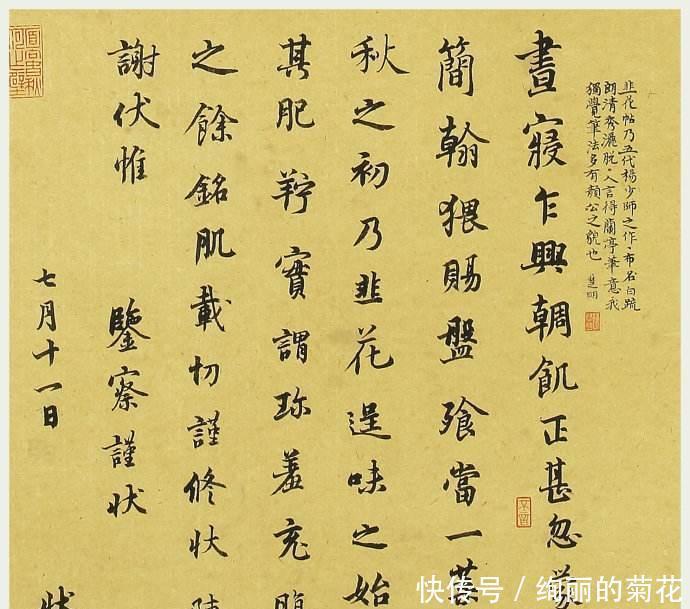 韭花帖乃五代楊少師之作布白疏
朗清秀灑脫人言得蘭亭筆意我
獨覺筆法多有顏公之貌也
晝寢乍興輖飢正甚忽
簡翰猥賜盤飧當一葉
秋之初乃韭花逞味之始
其肥羜實謂珍羞充腹
之餘銘肌載切謹修狀
謝伏惟 鑒察謹狀
七月十一日
狀
快传号/绚丽的菊花